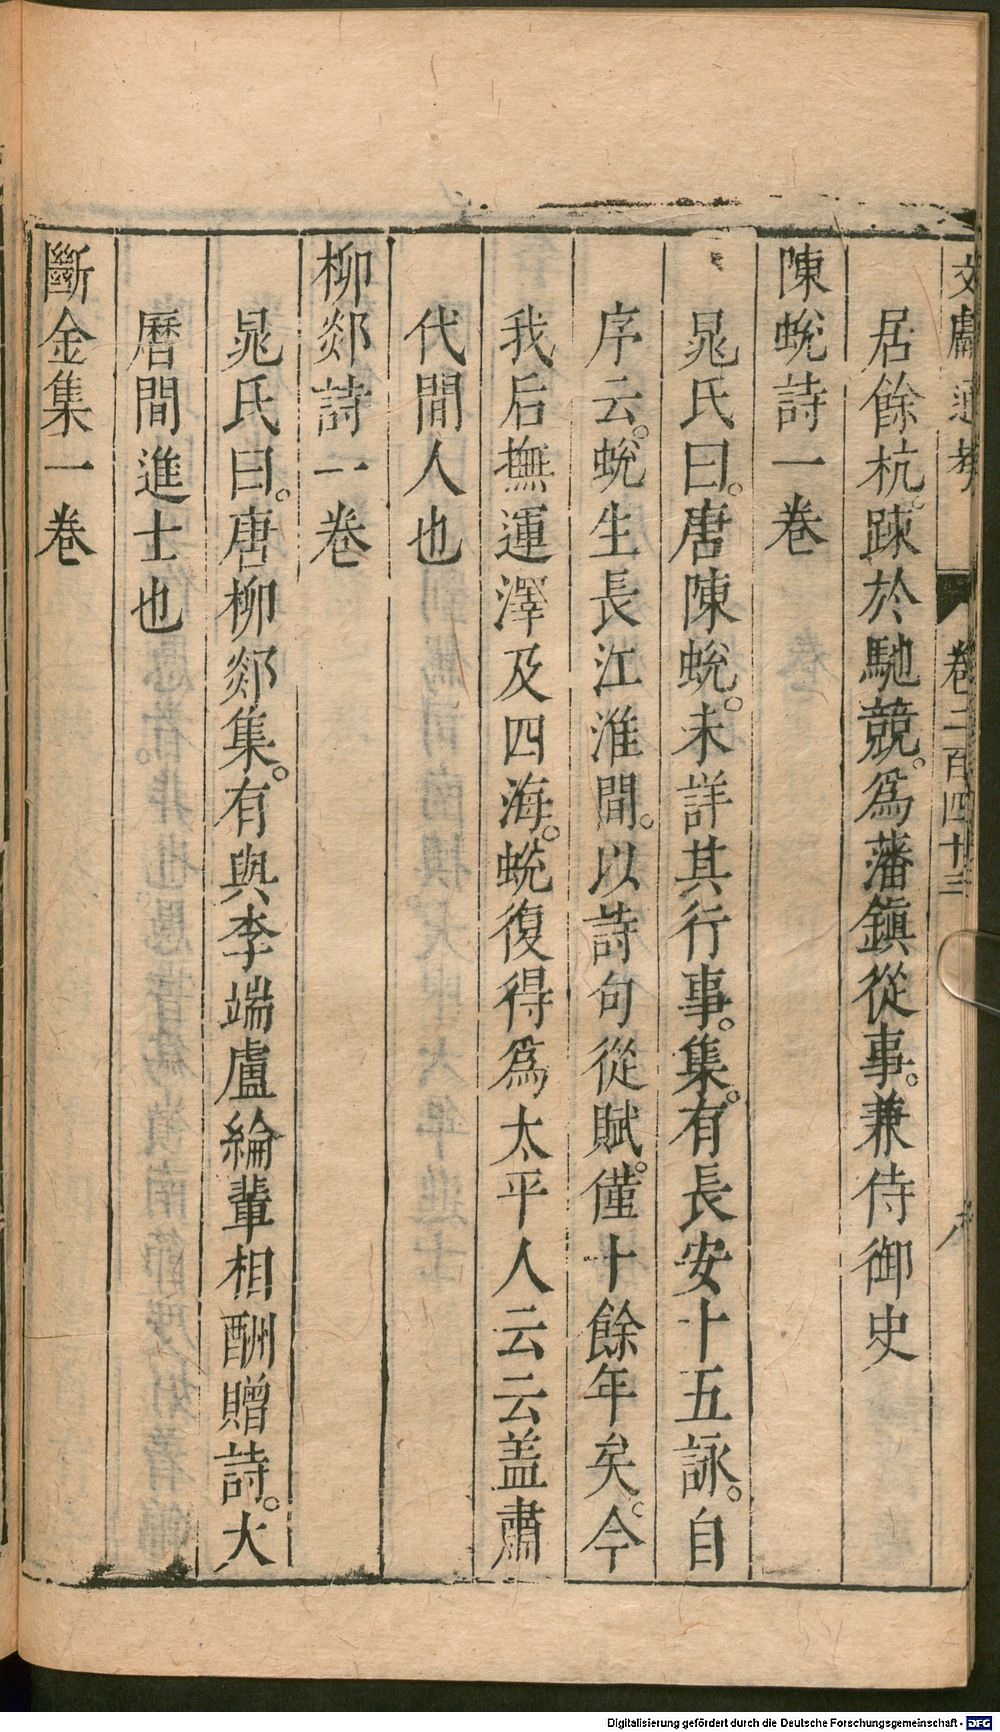 文獻通考 卷二百四十三 六
居餘杭。踈於馳競。爲藩鎮從事。兼侍御史
陳蛻詩一卷
晁氏曰。唐陳蛻。未詳其行事。集。有長安十五詠。自
序云。蛻生長江淮間。以詩句從賦。僅十餘年矣。今
我后撫運澤及四海。蛻復得爲太平人云云盖肅
代間人也
柳郯詩一卷
晁氏曰。唐柳郯集。有與李端盧綸輩相酬贈詩。大
曆間進士也
斷金集一卷
Digitalisierung gefördert durch die Deutsche Forschungsgemeinschaft - DFG